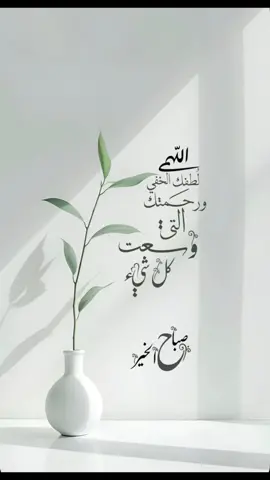 اللهم
لطفك الخفي
ورحمتك
التي
وسعت
كل شيء
صباح
الخير